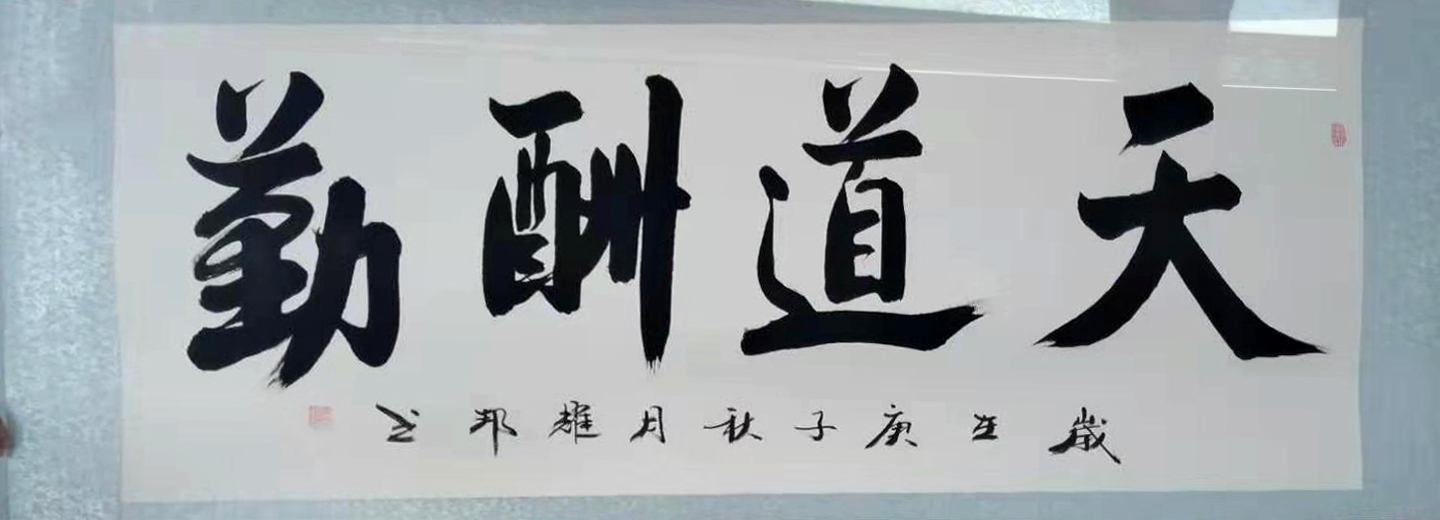 天道酬勤
歲在庚子秋月耀邦书